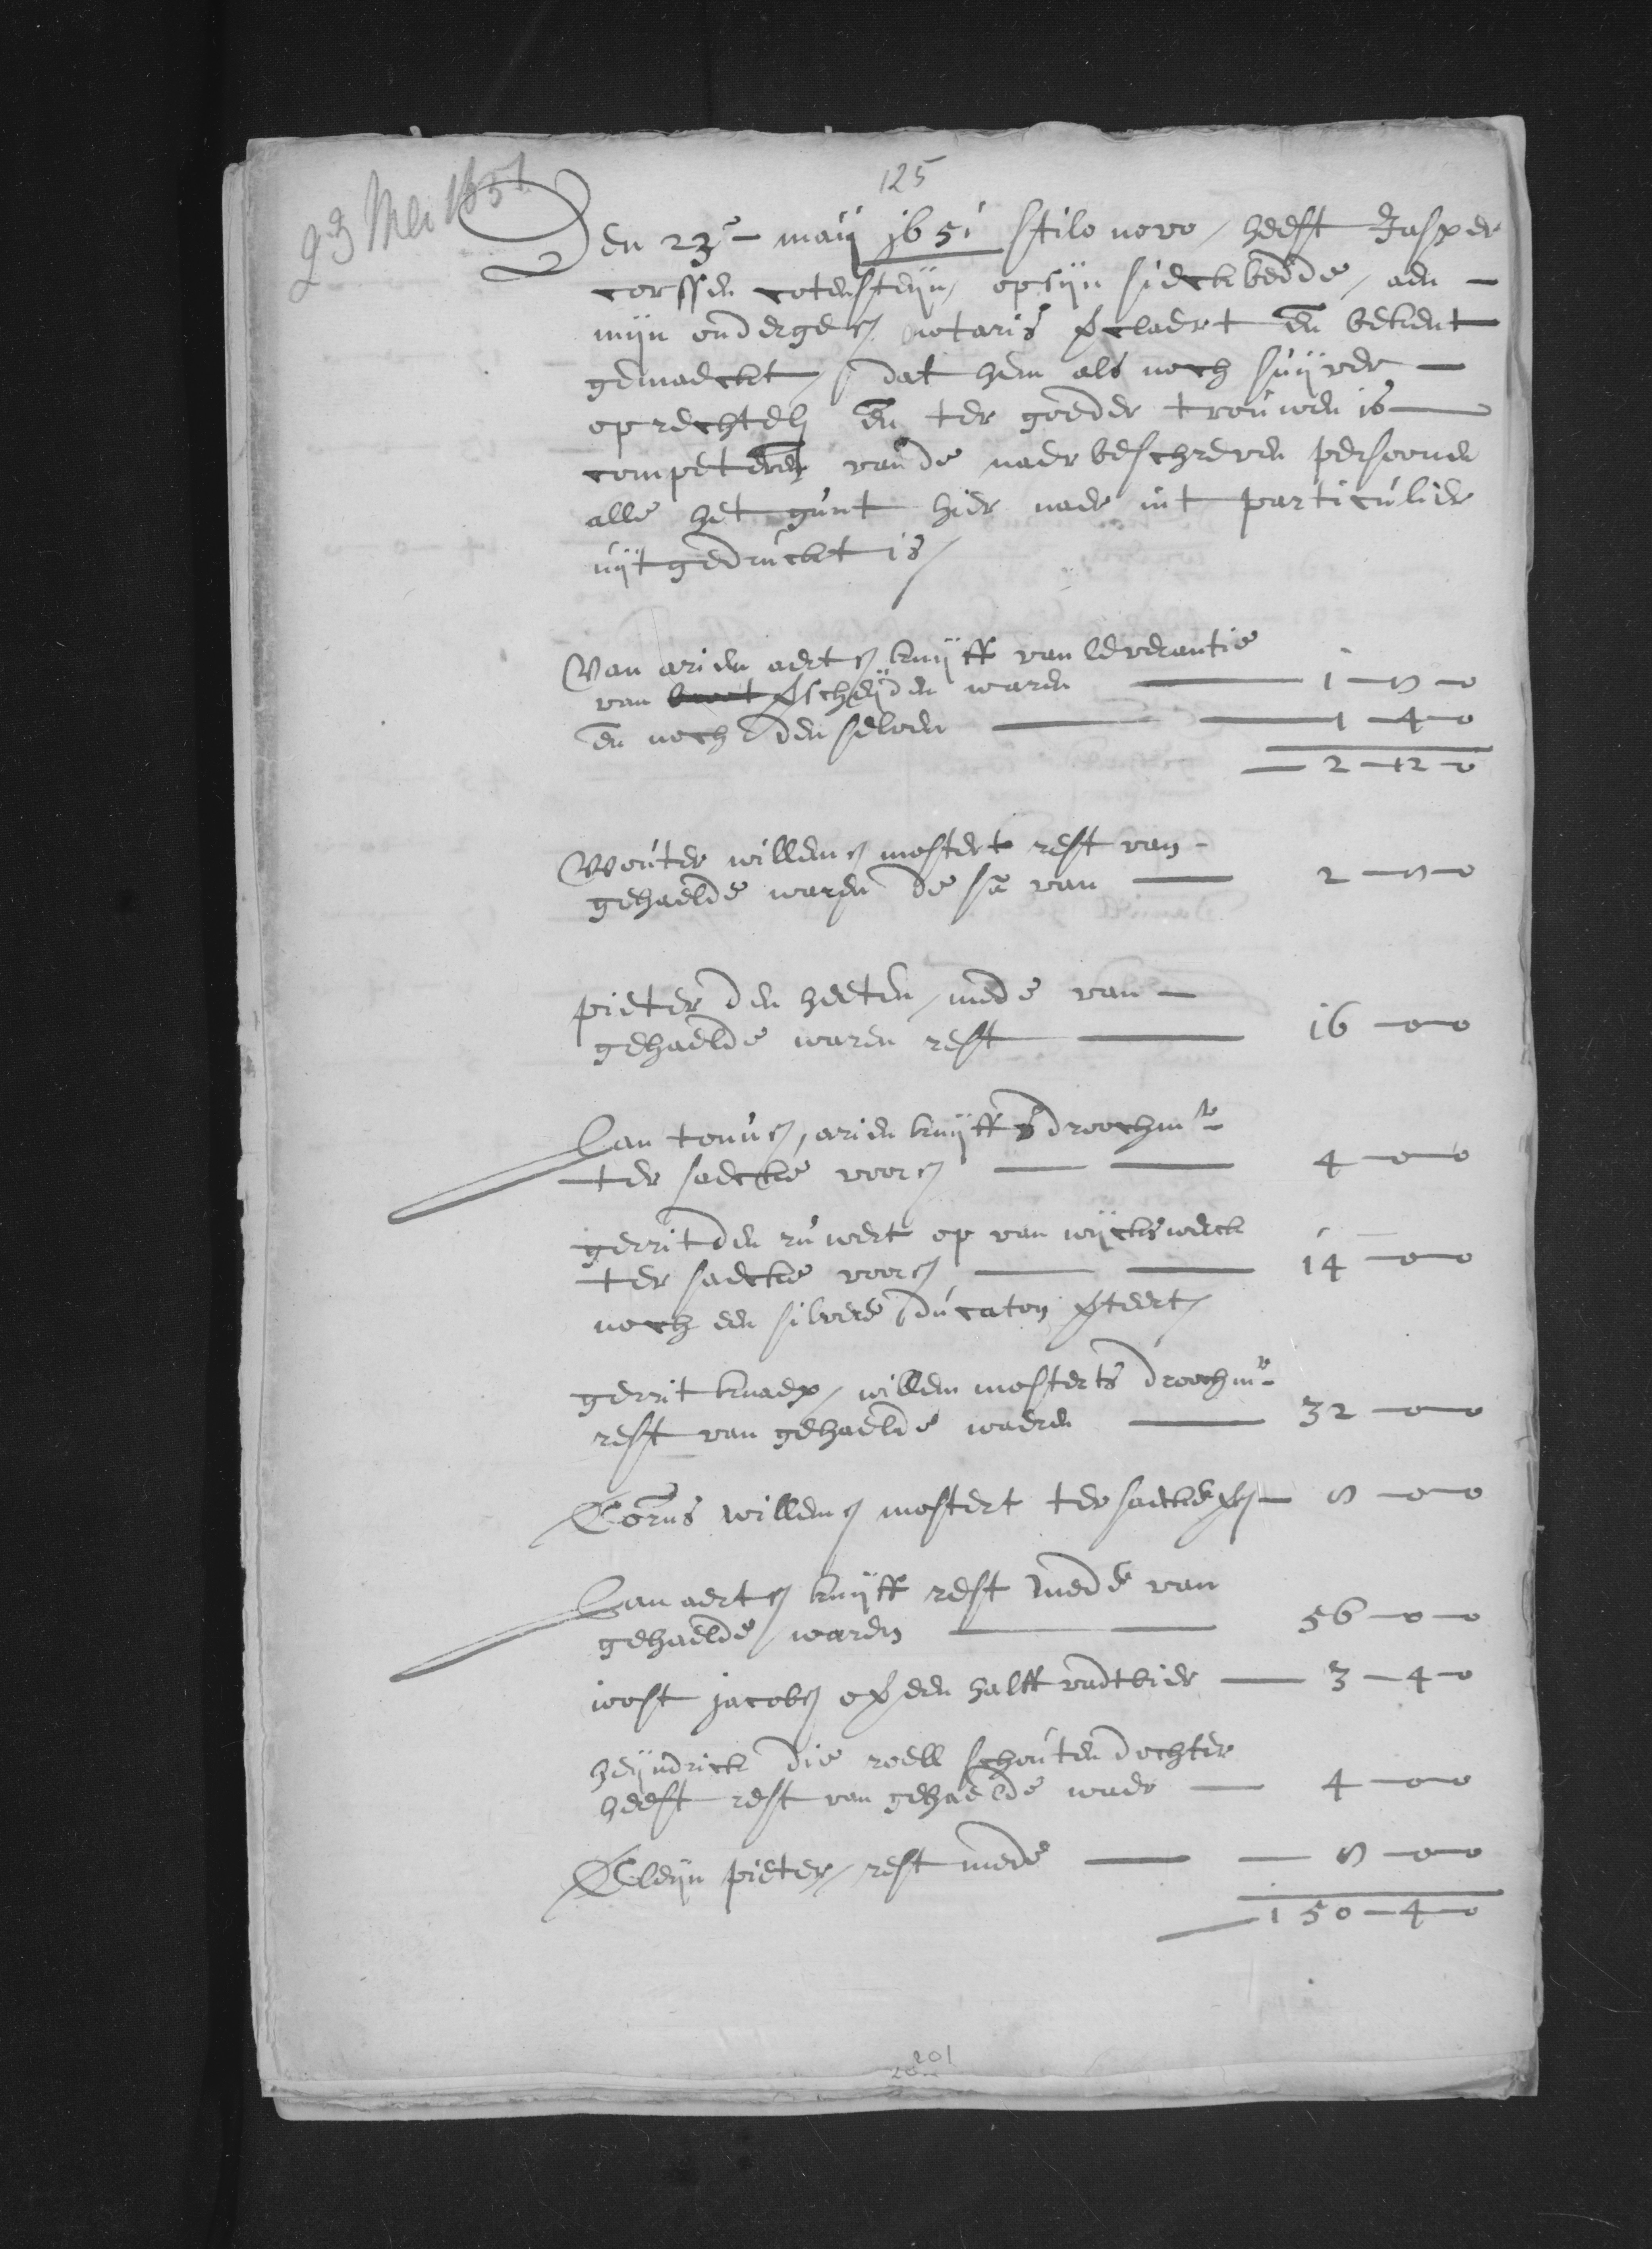 125
23 Mei 1651
Den 23e maij 1651 stilo novo / heeft Jasper
corssen cotensteijn, op sijn sieckbedde, aen
mijn onderges. notaris verclaert en bekent
gemaeckt, dat hem als noch suijver
oprechtel en ter goeder trouwen is
competeren vande naerbeschreven persoonen
alle het gunt hier naer int particulier
uijtgedruckt is /
Van arien aerts kuijff van leverantie
van verscheijden waren 1 - 8 - 0
en noch den selven 1 - 4 - 0
2 - 12 - 0
Wouter willems mostert rest van
gehaelde waren de sa van 2 - 8 - 0
pieter den heeten, mede van
gehaelde waren rest 16 - 0 - 0
Jan tonis, arien kuijffs droochmr
ter saecke voors 4 - 0 - 0
gerrit den ruwert op van wijckswerck
ter saecke voors 14 - 0 - 0
noch een silvere ducaton verteert
gerrit knaep, willem mosterts droochmr
rest van gehaelde waeren 32 - 0 - 0
Corns willems mostert ter saecke vs 8 - 0 - 0
Jan aerts kuijff rest mede van
gehaelde waren 56 - 0 - 0
joost jacobs over een halff vadt bier 3 - 4 - 0
heijndrick die roell schouten dochter
heeft rest van gehaelde waer 4 - 0 - 0
Cleijn pieter, rest mede 8 - 0 - 0
150 - 4 - 0
201